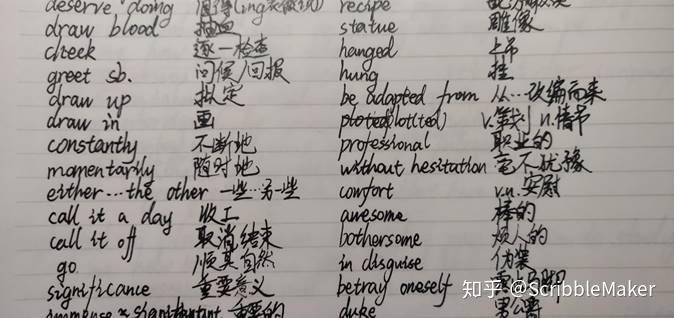 deserve doing
draw blood 抽血
cheek 逐一检查
greet sb. 问候/回报
draw up 拟定
draw in 画
constantly 不断地
momentarily 随时地
either...the other 一些...另一些
call it a day 收工
call it off 取消结束
go 顺其自然
significance 重要意义
immense 重要的
recipe
statue 雕像
hanged 上吊
hung 挂
be adapted from 从...改编而来
plot(ted) v.策划 n.情节
professional 职业的
without hesitation 毫不犹豫
comfort v.n.安慰
awesome 棒的
bothersome 烦人的
in disguise 伪装
betray oneself
duke 男公爵
知乎 @ScribbleMaker